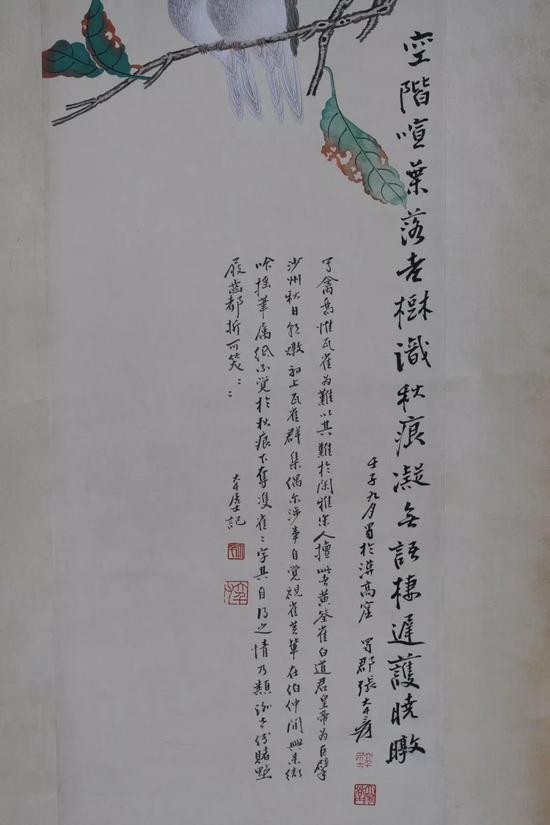 空階喧葉落老樹識秋痕凝無語棲遲護曉暾
壬子九月 於漠高窟 蜀郡張大千爰
寫禽鳥惟瓦雀為難以其難於閑雅宋人擅此者黃筌崔白道君皇帝為巨擘
沙州秋日朝暾初上瓦雀群集偶尔涉筆自覺視崔黃輩在伯仲間興來
吟搖筆屬紙不覺於秋痕下奪雙雀二字其自得之情乃類謝太傅賭墅
屐齒都折可笑：：
大千居士記